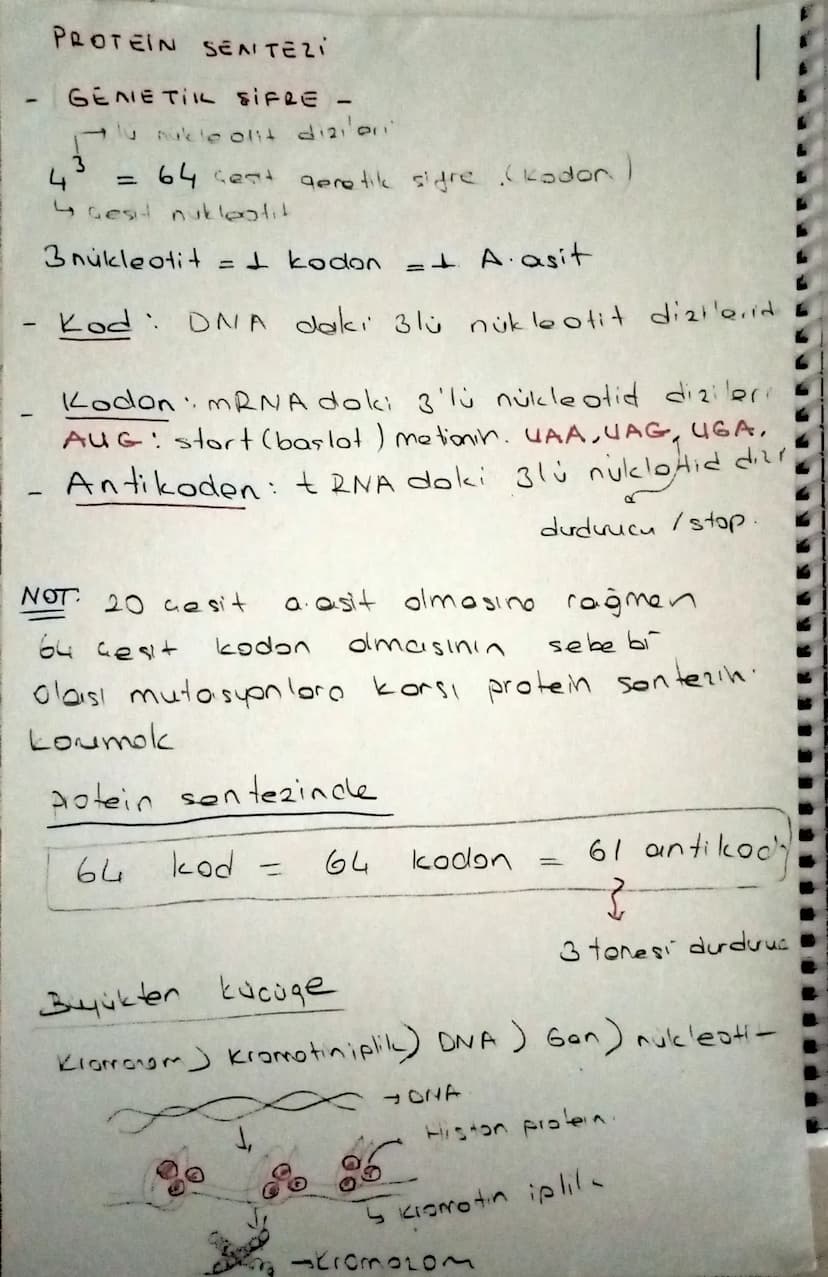 PROTEIN SENTEZI
1
- GENETİK ŞİFRE -
→ lü nükleotit dizileri
4³ = 64 çeşit genetik şifre. (kodon)
↳ çeşit nükleotit
3 nükleotit = 1 kodon = 1 A. asit
- Kod: DNA daki 3lü nükleotit dizilerid
- Kodon: mRNA daki 3'lü nükleotid dizileri
AUG: start (başlat) metionin. UAA, UAG, UGA,
- Antikodon: tRNA daki 3lü nükleotid dizi
durdurucu / stop.
NOT: 20 çeşit a.asit olmasına rağmen
64 çeşit kodon olmasının sebebi
olası mutasyonlara karşı protein sentezin.
korumak
Protein sentezinde
64 kod = 64 kodon = 61 antikod
3 tanesi durduruc
Büyükten küçüğe
Kromozom) Kromatin iplik) DNA) Gen) nükleoti-
→ DNA
Histon protein.
↳ kromatin iplik
→ kromozom